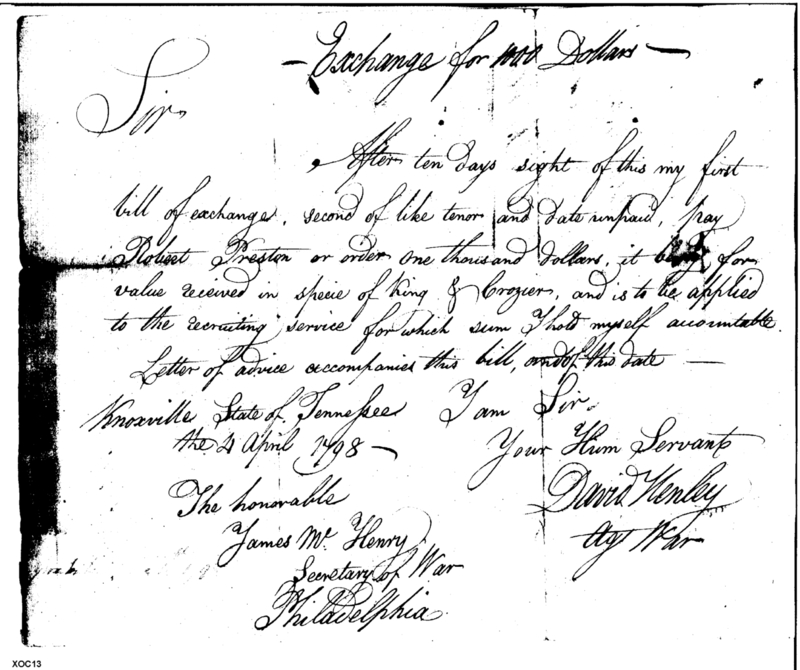 — Exchange for 1000 Dollars —
Sir
After ten days sight of this my first
bill of exchange, second of like tenor and date unpaid, pay
Robert Preston or order one thousand dollars, it being for
value received in specie of King & Crozier, and is to be applied
to the recruiting service for which sum I hold myself accountable.
Letter of advice accompanies this bill, and of this date —
Knoxville State of Tennessee
the 4 April 1798 —
I am Sir
Your Hum Servant
David Henley
Agt War
The honorable
James Mc Henry
Secretary of War
Philadelphia
XOC13